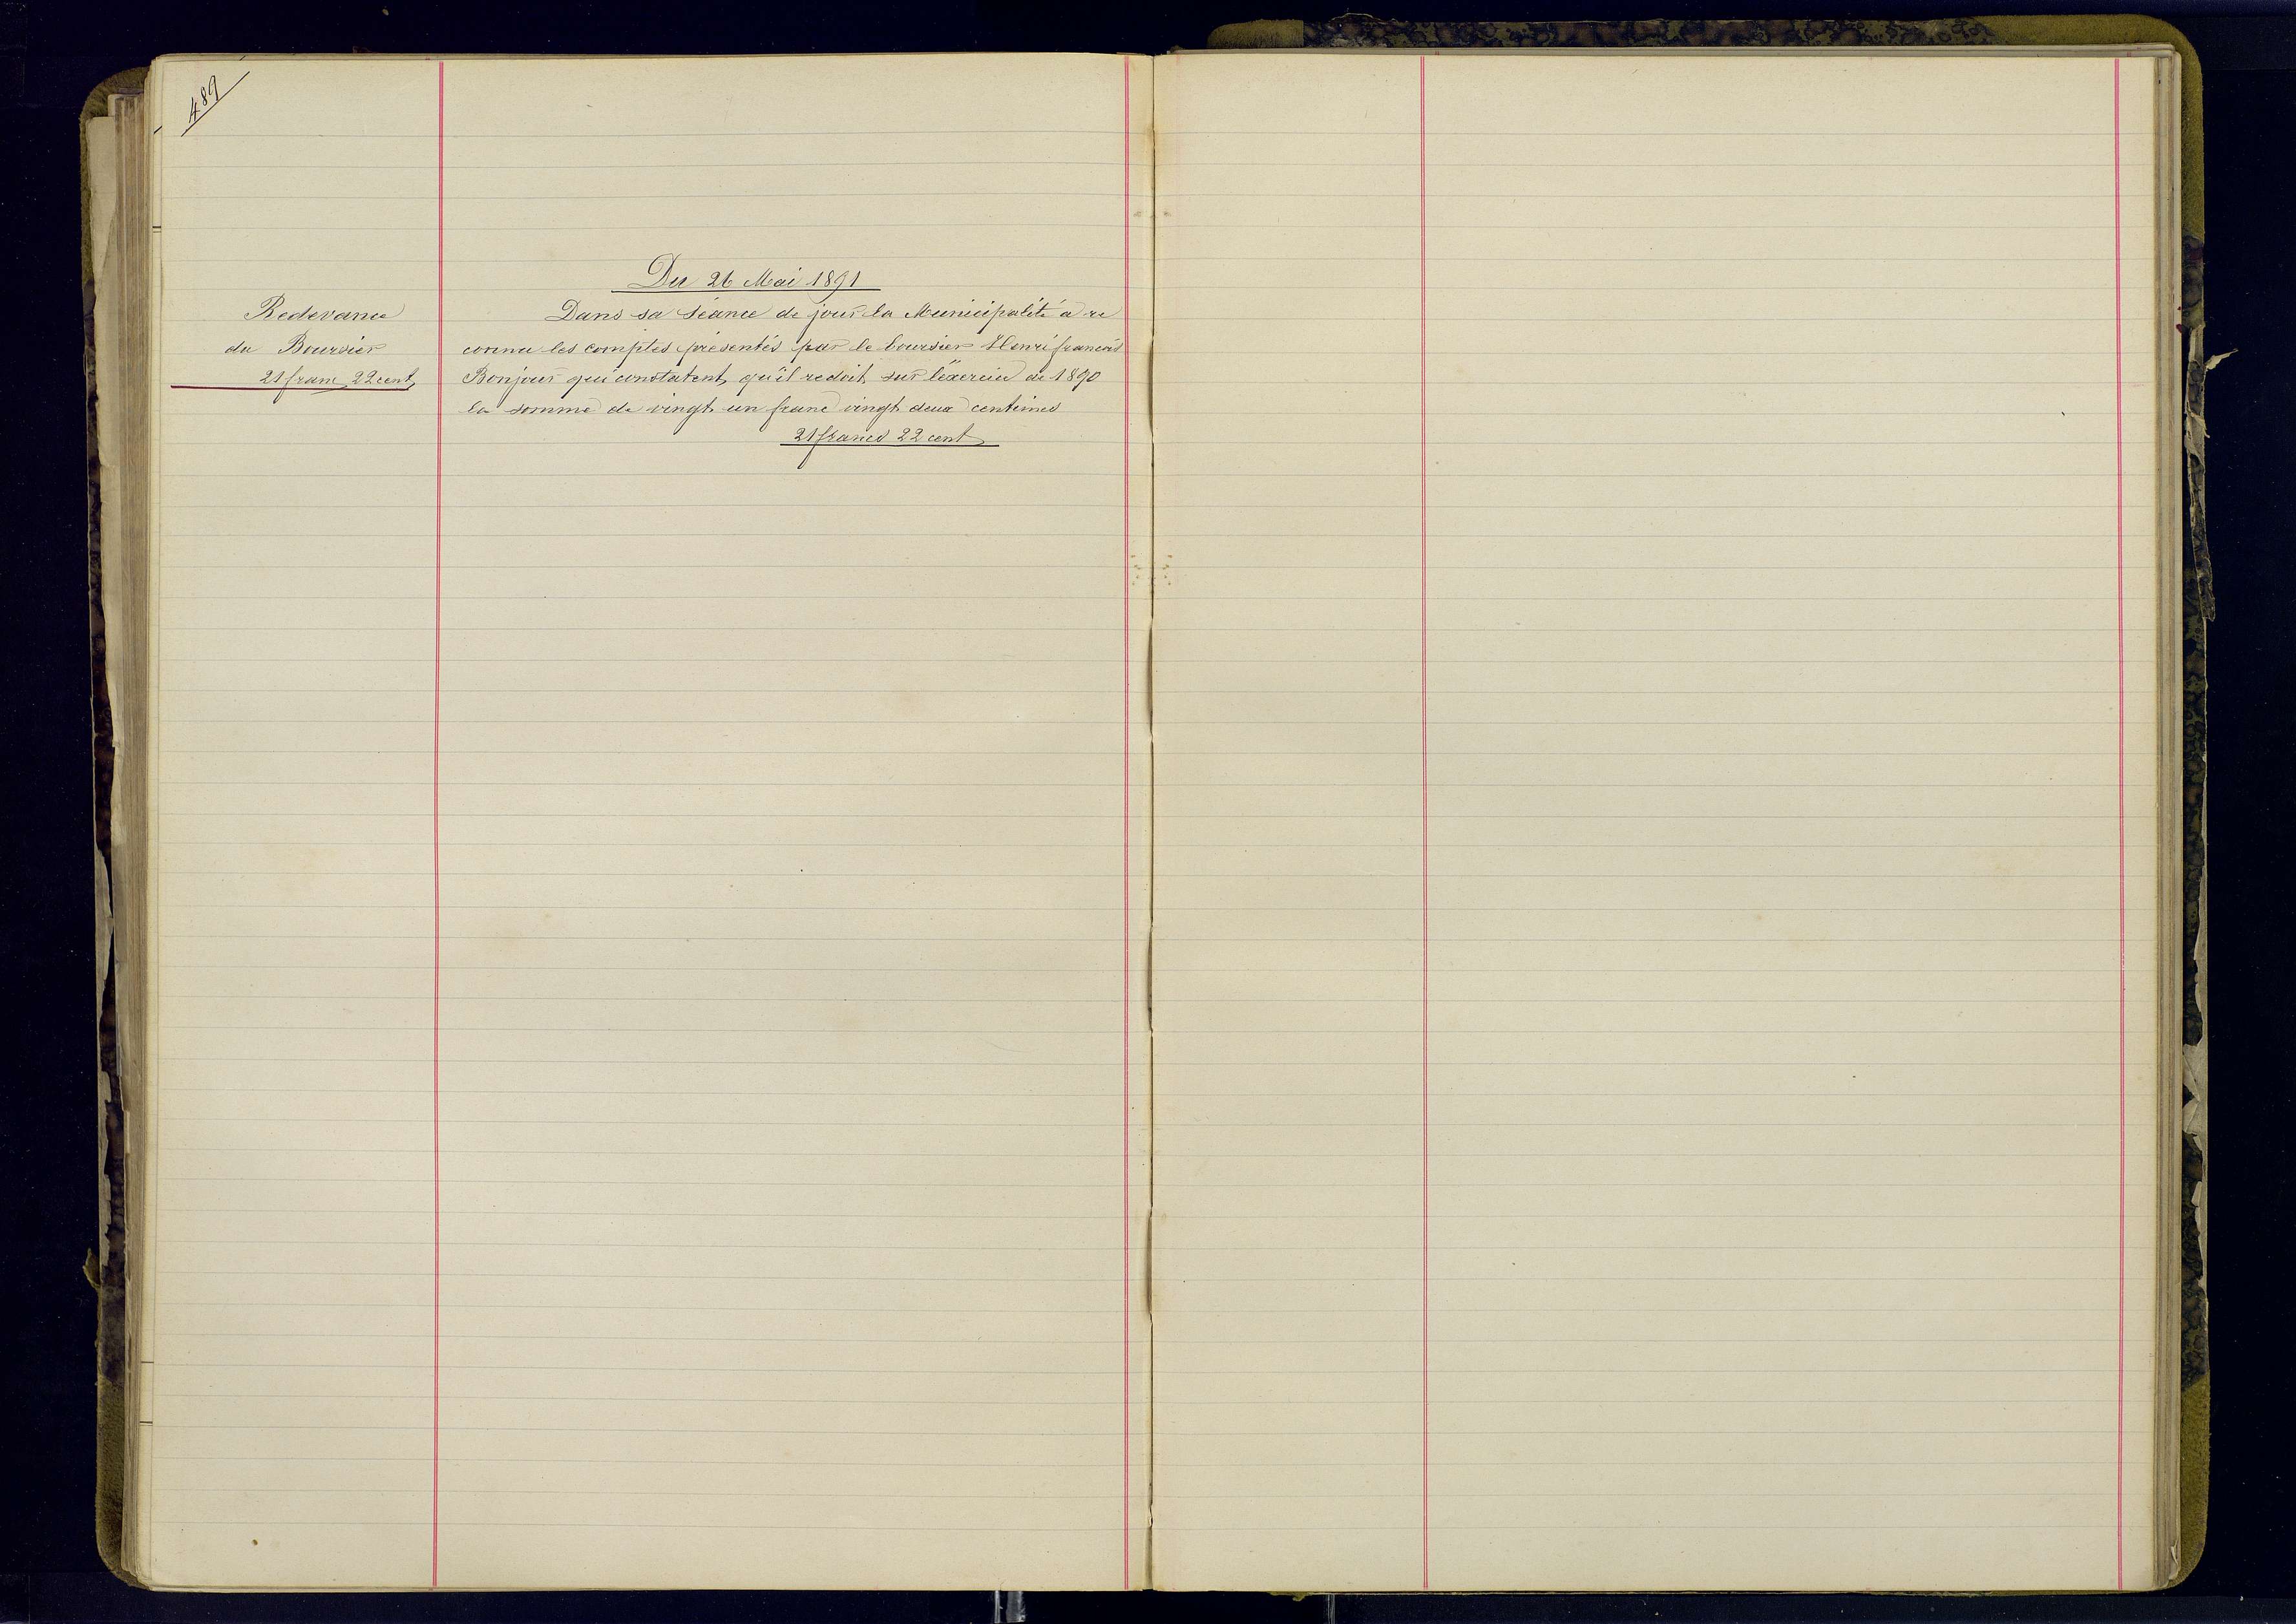 489
Du 26 Mai 1891
Redevance
du Boursier
21 franc 22 cent
Dans sa séance de jour la Municipalité a re
connu les comptes présentés par le boursier Henri francois
Bonjour qui constatent qu'il redoit sur l'éxercice de 1890
la somme de vingt un franc vingt deux centimes
21 francs 22 cent